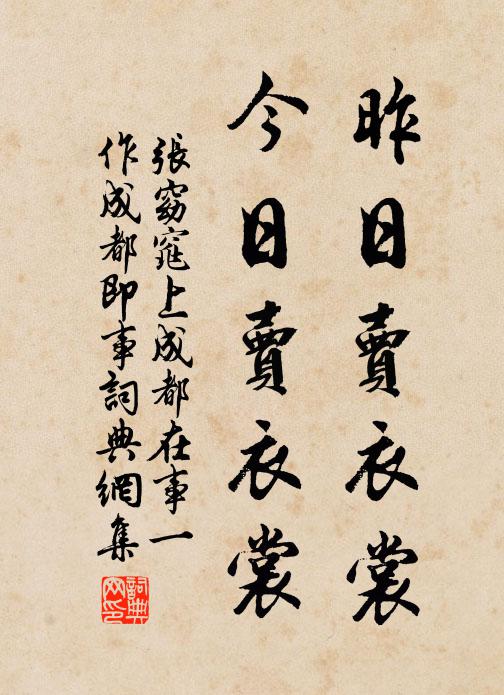 昨日賣衣裳
今日賣衣裳
張窈窕上成都在事一
作成都即事詞典網集
詞典网印